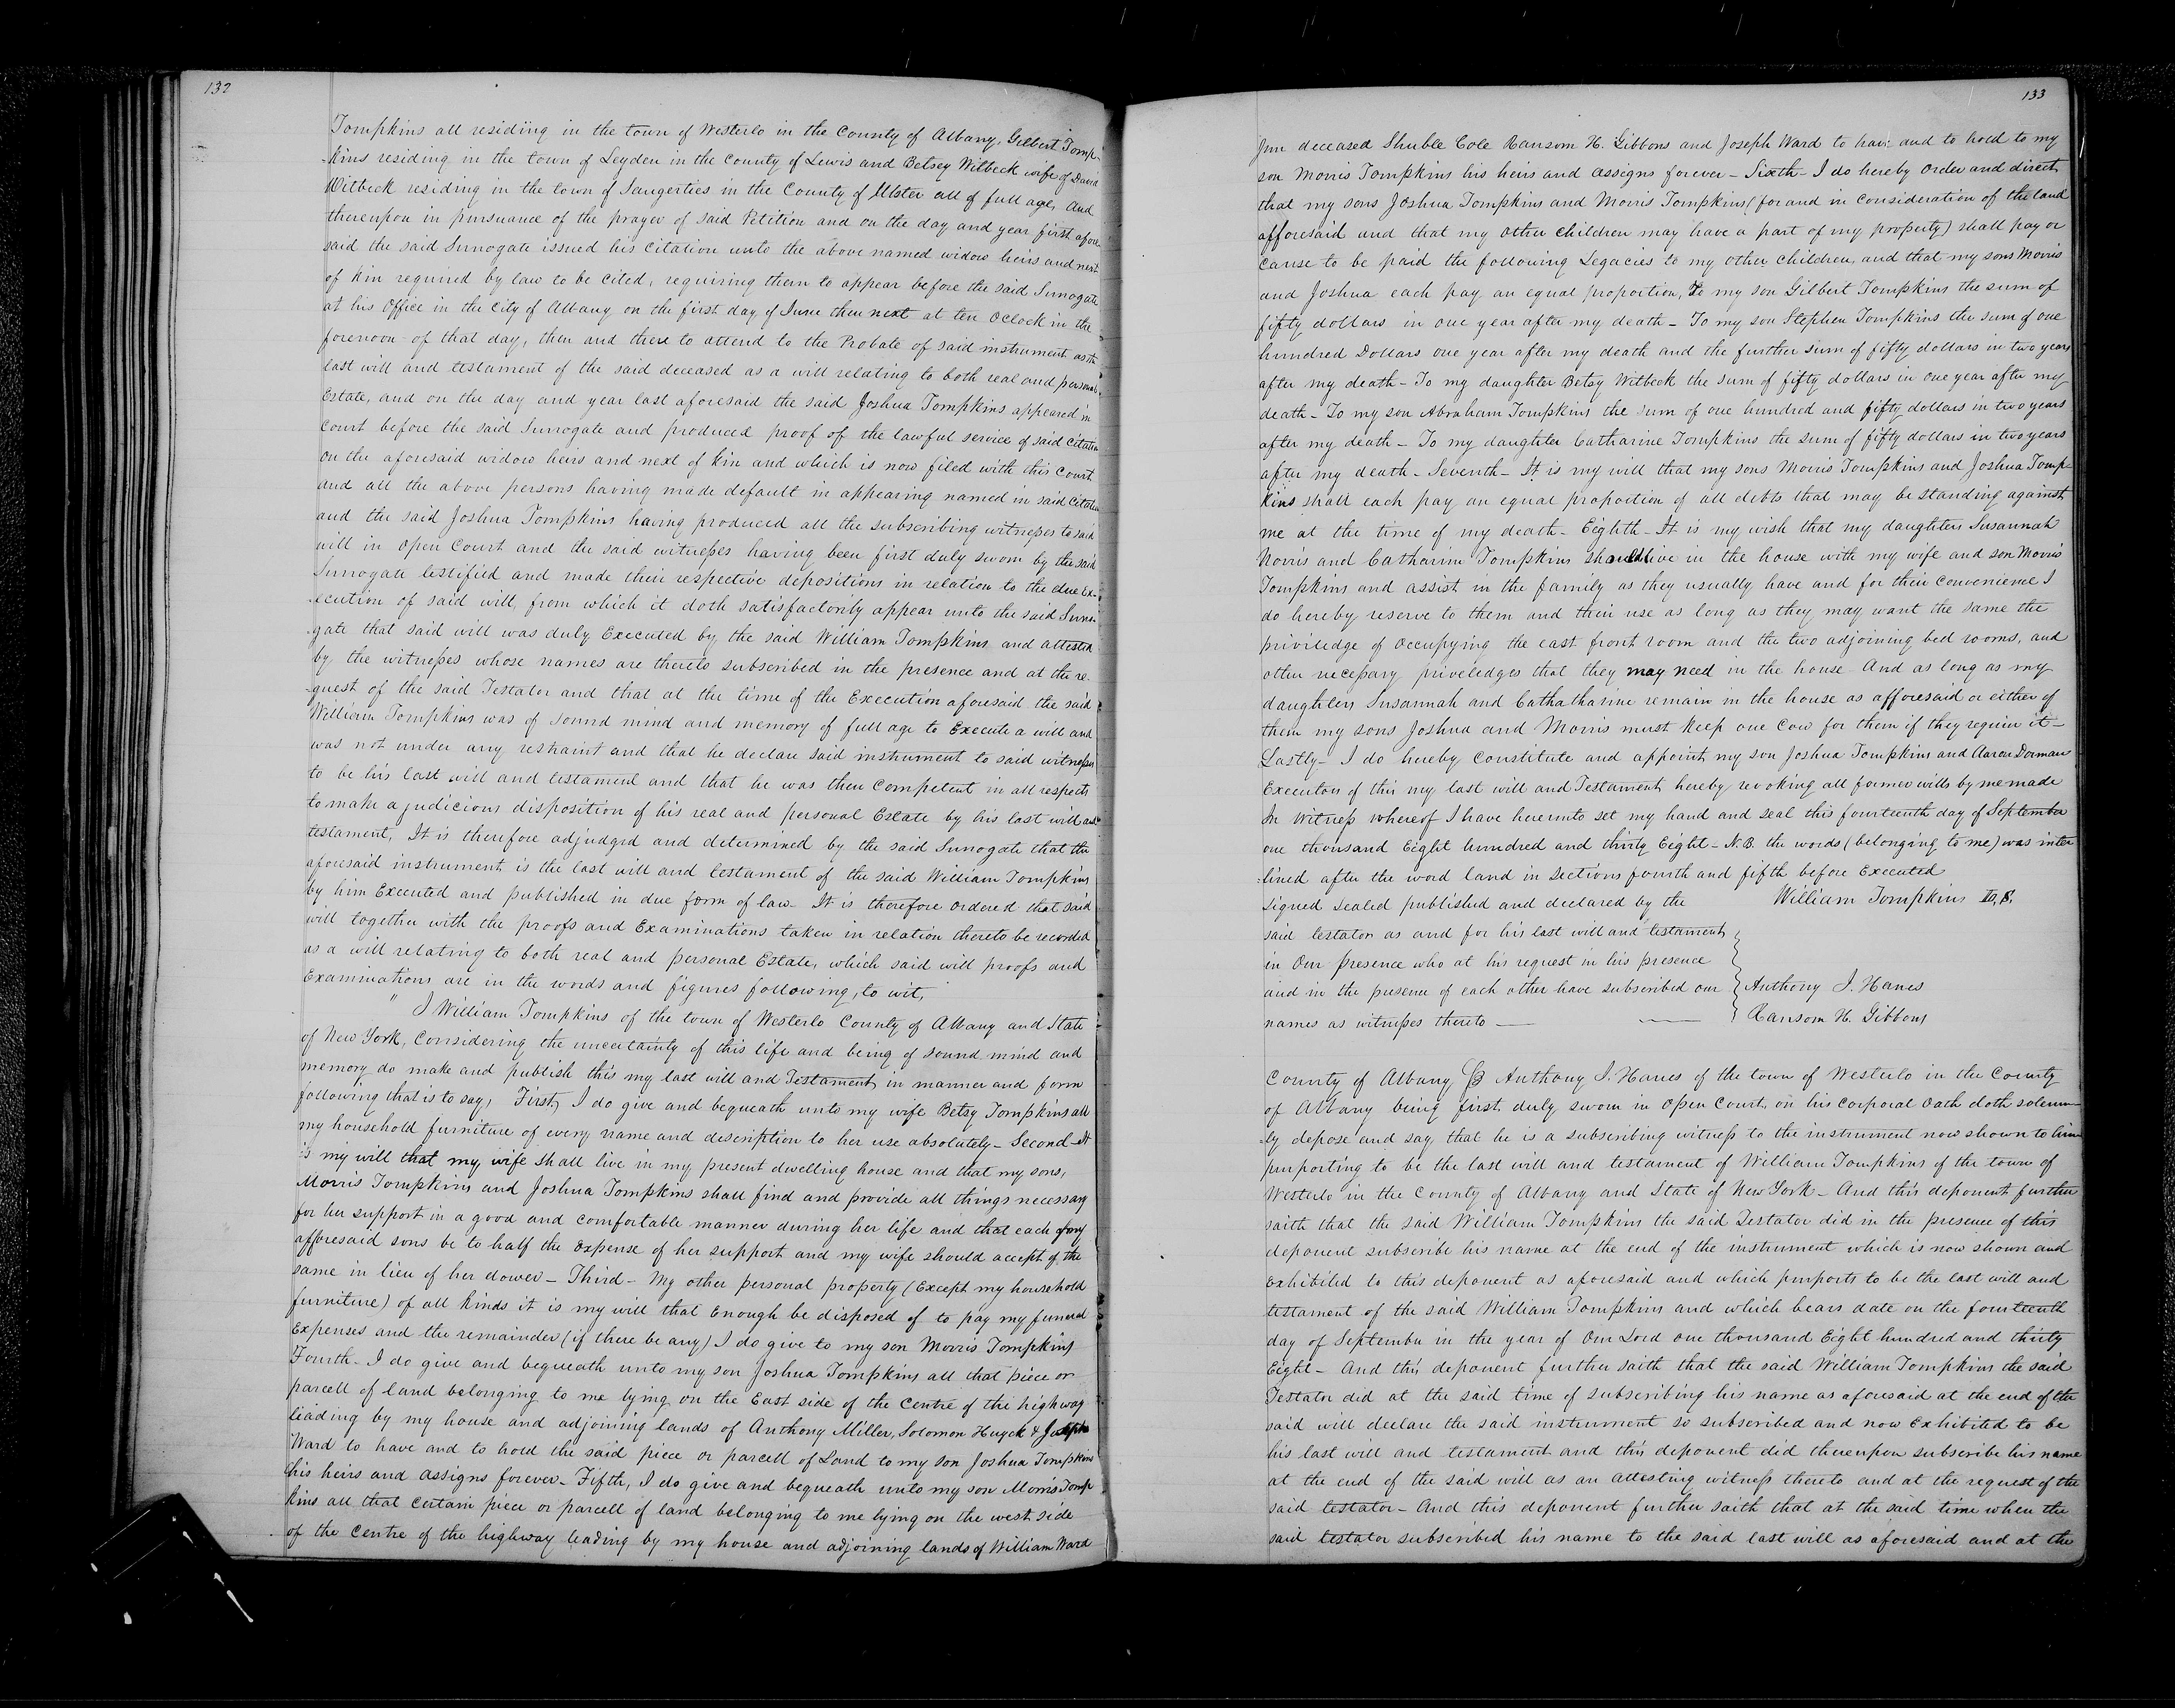 132
Tompkins all residing in the town of Westerlo in the County of Albany, Gilbert Tomp-
-kins residing in the town of Leyden in the County of Lewis and Betsey Witbeck wife of David
Witbeck residing in the town of Saugerties in the County of Ulster all of full age, And
thereupon in pursuance of the prayer of said Petition and on the day and year first afore
said the said Surrogate issued his citation unto the above named widow heirs and next
of kin required by law to be cited, requiring them to appear before the said Surrogate
at his Office in the City of Albany on the first day of June then next at ten Oclock in the
forenoon of that day, then and there to attend to the Probate of said instrument as the
last will and testament of the said deceased as a will relating to both real and personal
Estate, and on the day and year last aforesaid the said Joshua Tompkins appeared in
Court before the said Surrogate and produced proof of the lawful service of said Citation
on the aforesaid widow heirs and next of kin and which is now filed with this Court
and all the above persons having made default in appearing named in said Citation
and the said Joshua Tompkins having produced all the subscribing witnesses to said
will in Open Court and the said witnesses having been first duly sworn by the said
Surrogate testified and made their respective depositions in relation to the due Ex-
-ecution of said will, from which it doth satisfactorily appear unto the said Surro-
-gate that said will was duly Executed by the said William Tompkins and attested
by the witnesses whose names are thereto subscribed in the presence and at the re-
-quest of the said Testator and that at the time of the Execution aforesaid the said
William Tompkins was of sound mind and memory of full age to Execute a will and
was not under any restraint and that he declare said instrument to said witnesses
to be his last will and testament and that he was then Competent in all respects
to make a judicious disposition of his real and personal Estate by his last will and
testament, It is therefore adjudged and determined by the said Surrogate that the
aforesaid instrument is the last will and testament of the said William Tompkins
by him Executed and published in due form of law It is therefore ordered that said
will together with the proofs and Examinations taken in relation thereto be recorded
as a will relating to both real and personal Estate, which said will proofs and
Examinations are in the words and figures following, to wit,
" I William Tompkins of the town of Westerlo County of Albany and State
of New York, Considering the uncertainty of this life and being of sound mind and
memory do make and publish this my last will and Testament in manner and form
following that is to say, First, I do give and bequeath unto my wife Betsy Tompkins all
my household furniture of every name and description to her use absolutely - Second - It
is my will that my wife shall live in my present dwelling house and that my sons,
Morris Tompkins and Joshua Tompkins shall find and provide all things necessary
for her support in a good and comfortable manner during her life and that each of my
afforesaid sons be to half the expense of her support and my wife should accept of the
same in lieu of her dower - Third - My other personal property (Except my household
furniture) of all kinds it is my will that Enough be disposed of to pay my funeral
Expenses and the remainder (if there be any) I do give to my son Morris Tompkins
Fourth - I do give and bequeath unto my son Joshua Tompkins all that piece or
parcell of land belonging to me lying on the East side of the Centre of the highway
leading by my house and adjoining lands of Anthony Miller, Solomon Huyck & Joseph
Ward to have and to hold the said piece or parcell of Land to my son Joshua Tompkins
his heirs and assigns forever - Fifth, I do give and bequeath unto my son Morris Tomp
kins all that Certain piece or parcell of land belonging to me lying on the west side
of the Centre of the highway leading by my house and adjoining lands of William Ward
133
Junr deceased Shuble Cole Ransom H. Gibbons and Joseph Ward to have and to hold to my
son Morris Tompkins his heirs and assigns forever - Sixth - I do hereby Order and direct
that my sons Joshua Tompkins and Morris Tompkins (for and in consideration of the land
afforesaid and that my other children may have a part of my property) shall pay or
cause to be paid the following Legacies to my other children, and that my sons Morris
and Joshua each pay an equal proportion, To my son Gilbert Tompkins the sum of
fifty dollars in one year after my death - To my son Stephen Tompkins the sum of one
hundred Dollars one year after my death and the further sum of fifty dollars in two years
after my death - To my daughter Betsy Witbeck the sum of fifty dollars in one year after my
death - To my son Abraham Tompkins the sum of one hundred and fifty dollars in two years
after my death - To my daughter Catharine Tompkins the sum of fifty dollars in two years
after my death - Seventh - It is my will that my sons Morris Tompkins and Joshua Tomp-
kins shall each pay an equal proportion of all debts that may be standing against
me at the time of my death - Eighth - It is my wish that my daughters Susannah
Norris and Catharine Tompkins should live in the house with my wife and son Morris
Tompkins and assist in the family as they usually have and for their convenience I
do hereby reserve to them and their use as long as they may want the same the
priviledge of Occupying the east front room and the two adjoining bed rooms, and
other necessary priveledges that they may need in the house And as long as my
daughters Susannah and Cathatharine remain in the house as afforesaid or either of
them my sons Joshua and Morris must keep one Cow for them if they require it -
Lastly - I do hereby Constitute and appoint my son Joshua Tompkins and Aaron Dorman
Executors of this my last will and Testament hereby revoking all former wills by me made
In Witness whereof I have hereunto set my hand and seal this fourteenth day of September
one thousand Eight hundred and thirty Eight - N.B. the words (belonging to me) was inter
-lined after the word land in Sections fourth and fifth before Executed
Signed Sealed published and declared by the William Tompkins L.S.
said testator as and for his last will and testament
in Our presence who at his request in his presence
and in the presence of each other have subscribed our Anthony I. Hanes
names as witnesses thereto — Ransom H. Gibbons
County of Albany SS Anthony I. Hanes of the town of Westerlo in the County
of Albany being first duly sworn in Open Court, on his corporal Oath doth solemn-
-ly depose and say that he is a subscribing witness to the instrument now shown to him
purporting to be the last will and testament of William Tompkins of the town of
Westerlo in the County of Albany and State of New York - And this deponent further
saith that the said William Tompkins the said Testator did in the presence of this
deponent subscribe his name at the end of the instrument which is now shown and
exhibited to this deponent as aforesaid and which purports to be the last will and
testament of the said William Tompkins and which bears date on the fourteenth
day of September in the year of Our Lord one thousand Eight hundred and thirty
Eight - And this deponent further saith that the said William Tompkins the said
Testator did at the said time of subscribing his name as aforesaid at the end of the
said will declare the said instrument so subscribed and now Exhibited to be
his last will and testament and this deponent did thereupon subscribe his name
at the end of the said will as an attesting witness thereto and at the request of the
said testator - And this deponent further saith that at the said time when the
said testator subscribed his name to the said last will as aforesaid and at the